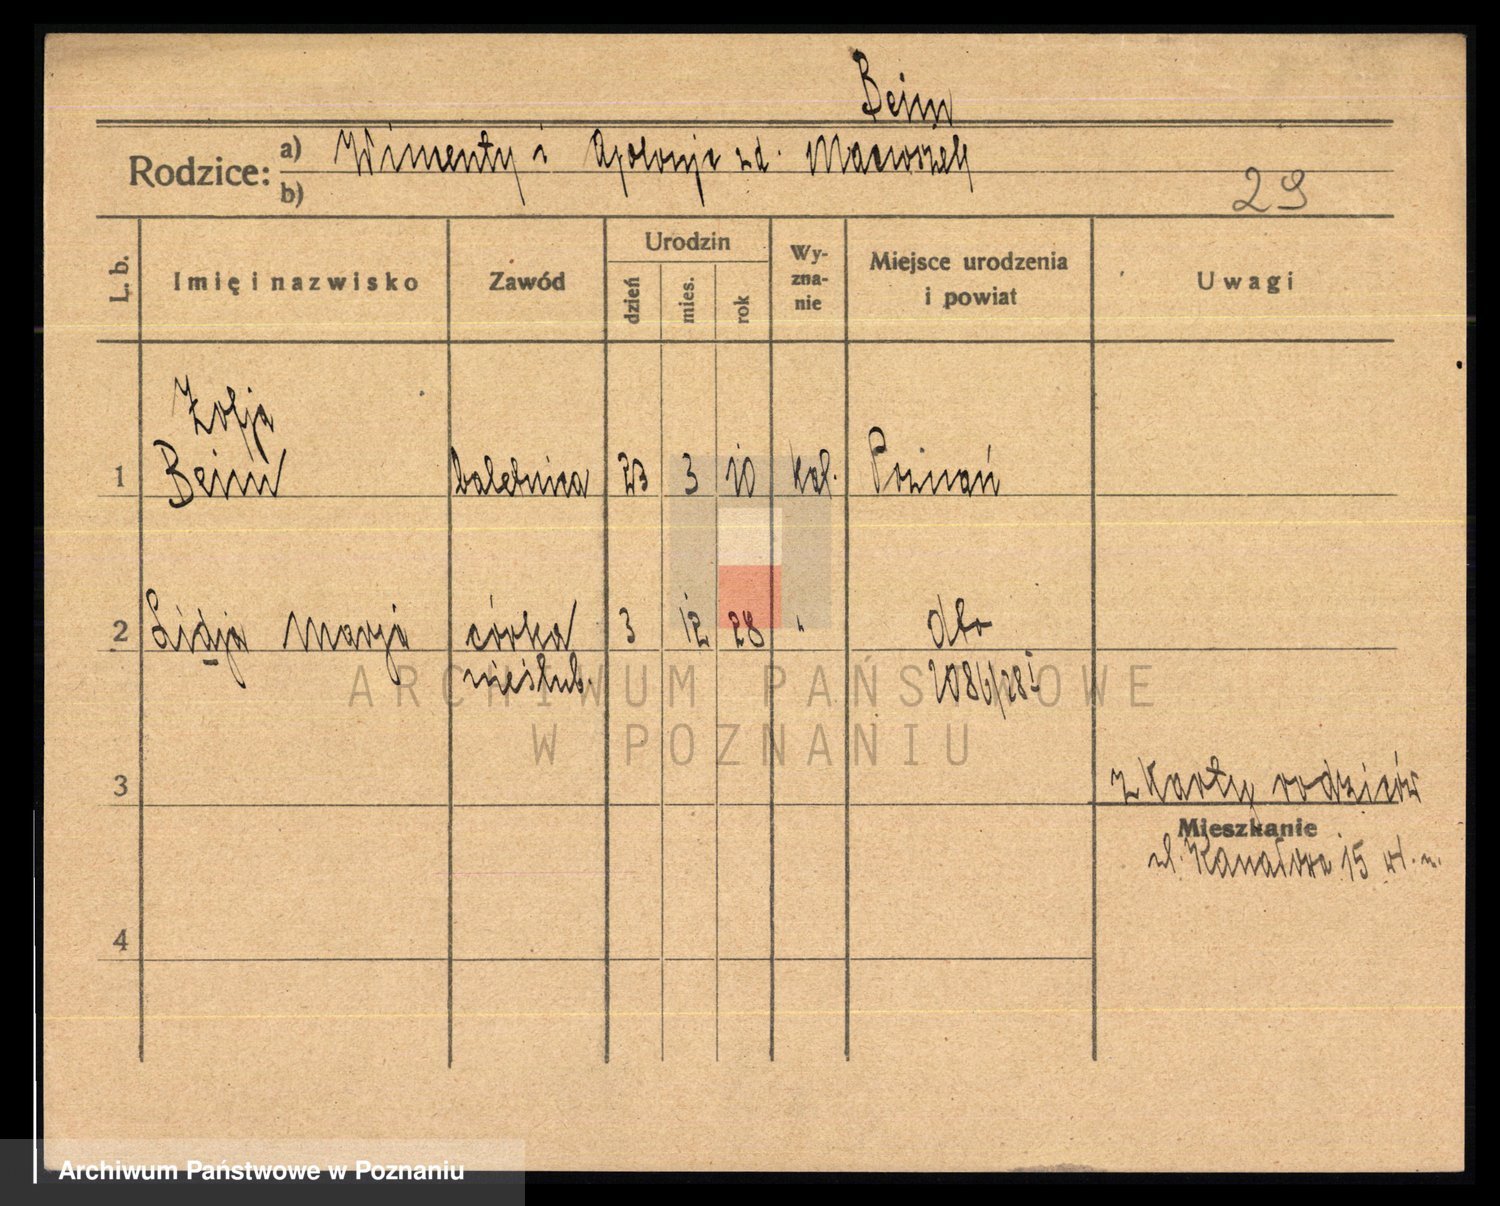 Beim
Rodzice: a) Wincenty i Apolonja zd.
b)
29
L. b.
Imię i nazwisko
Zawód
Urodzin
dzień
mies.
rok
Wy-
zna-
nie
Miejsce urodzenia
i powiat
Uwagi
Zofja
1 Beim baletnica 23 3 10 kat. Poznań
2 Lidja Marja córka 3 12 28 " dto
nieślub. 2086/28 I
ARCHIWUM PAŃSTWOWE
W POZNANIU
3
z Karty rodziców
Mieszkanie
ul. Kanałowa 15
4
Archiwum Państwowe w Poznaniu